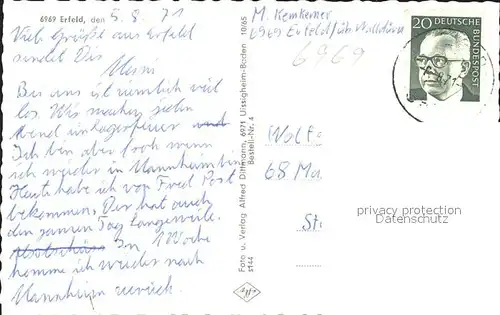 6969 Erfeld, den 5.8.71
Viele Grüße aus Erfeld
sendet Dir
Bei uns ist ziemlich viel
los. Wir machen jeden
Abend ein lagerfeuer und
Ich bin aber froh wenn
ich wieder in Mannheim bin
Heute habe ich von Fred Post
bekommen. Der hat auch
den ganzen Tag langeweile.
In 1 Woche
komme ich wieder nach
Mannheim zurück.
Foto u. Verlag Alfred Dittmann, 6971 Uissigheim-Baden 10/65
Bestell-Nr. 4
S144
Agfa
M. Kemkemer
6969 Erfeld/üb. Walldürn
6969
20 DEUTSCHE
BUNDESPOST
68 Ma
St
privacy protection
Datenschutz